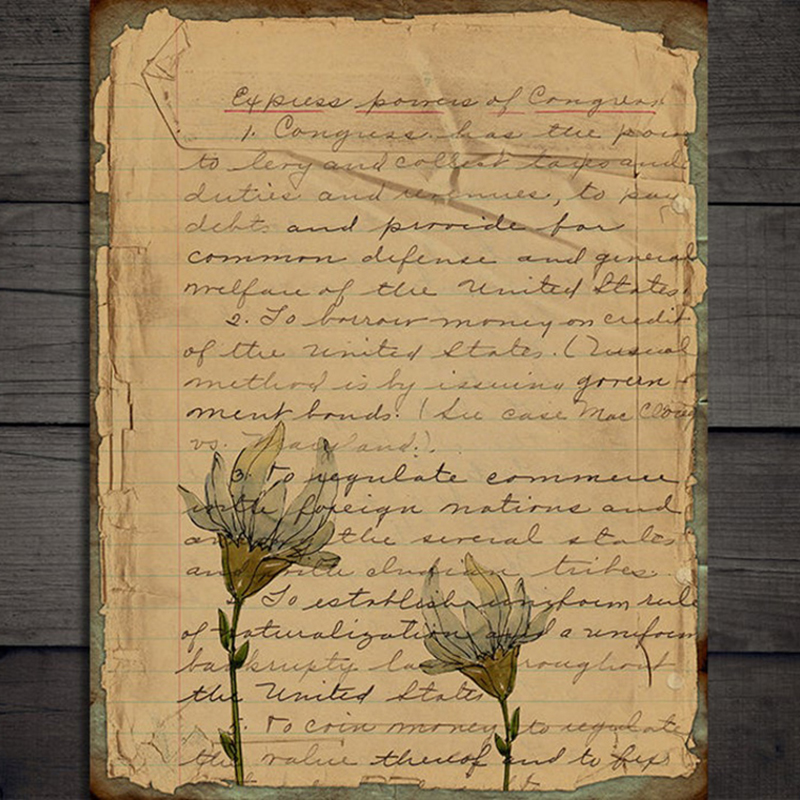 Express powers of Congress
1. Congress has the pow
to levy and collect taxes and
duties and revenues, to pay
debts and provide for
common defense and general
welfare of the United States
2. To borrow money on credit
of the United States. (Usual
method is by issuing govern-
ment bonds. (See case Mac
vs. Maryland.).
3. to regulate commerce
with foreign nations and
among the several states
and with Indian tribes.
To establish uniform rule
of naturalization and a uniform
bankrupty throughout
the United States
5. To coin money to regulate
the value thereof and to fix